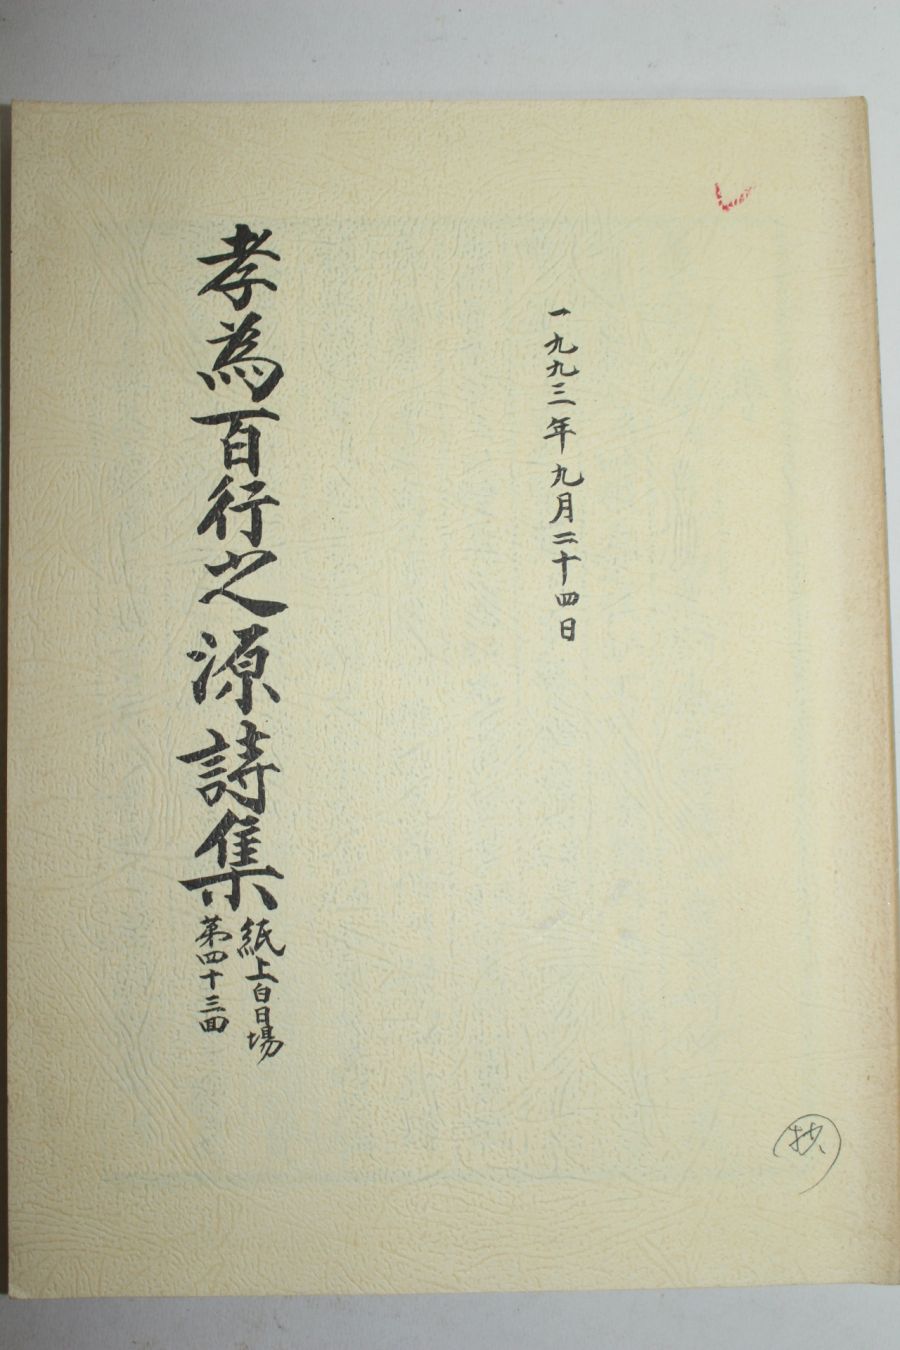 一九九三年九月二十四日
孝為百行之源詩集
紙上白日場
第四十三面
抄